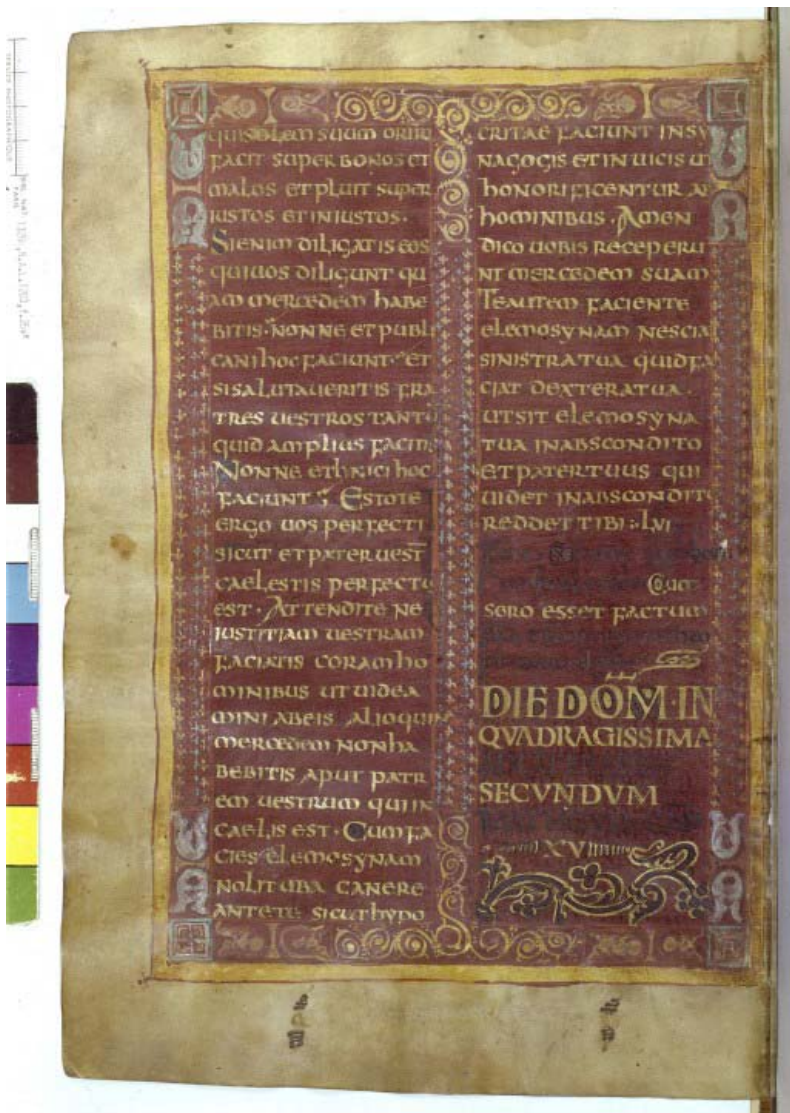 QUISOLEM SUUM ORIRI
FACIT SUPER BONOS ET
MALOS ET PLUIT SUPER
IUSTOS ET INIUSTOS ·
SI ENIM DILIGATIS EOS
QUI UOS DILIGUNT QU
AM MERCEDEM HABE
BITIS · NONNE ET PUBLI
CANI HOC FACIUNT · ET
SI SALUTAUERITIS FRA
TRES UESTROS TANTU
QUID AMPLIUS FACITIS
NONNE ETHNICI HOC
FACIUNT ESTOTE
ERGO UOS PERFECTI
SICUT ET PATER UEST̅
CAELESTIS PERFECTUS
EST · ATTENDITE NE
IUSTITIAM UESTRAM
FACIATIS CORAM HO
MINIBUS UT UIDEA
MINI AB EIS ALIOQUIN
MERCEDEM NON HA
BEBITIS APUT PATR
EM UESTRUM QUI IN
CAELIS EST · CUM FA
CIES ELEMOSYNAM
NOLI TUBA CANERE
ANTE TE SICUT HYPO
CRITAE FACIUNT IN SY
NAGOGIS ET IN UICIS UT
HONORIFICENTUR AB
HOMINIBUS · AMEN
DICO UOBIS RECEPERU
NT MERCEDEM SUAM
TE AUTEM FACIENTE
ELEMOSYNAM NESCIAT
SINISTRA TUA QUID FA
CIAT DEXTERA TUA ·
UT SIT ELEMOSYNA
TUA IN ABSCONDITO
ET PATER TUUS QUI
UIDET IN ABSCONDITO
REDDET TIBI : LVI
CUM
SERO ESSET FACTUM
DIE DOM · IN
QVADRAGISSIMA
SECVNDVM
XVIIII